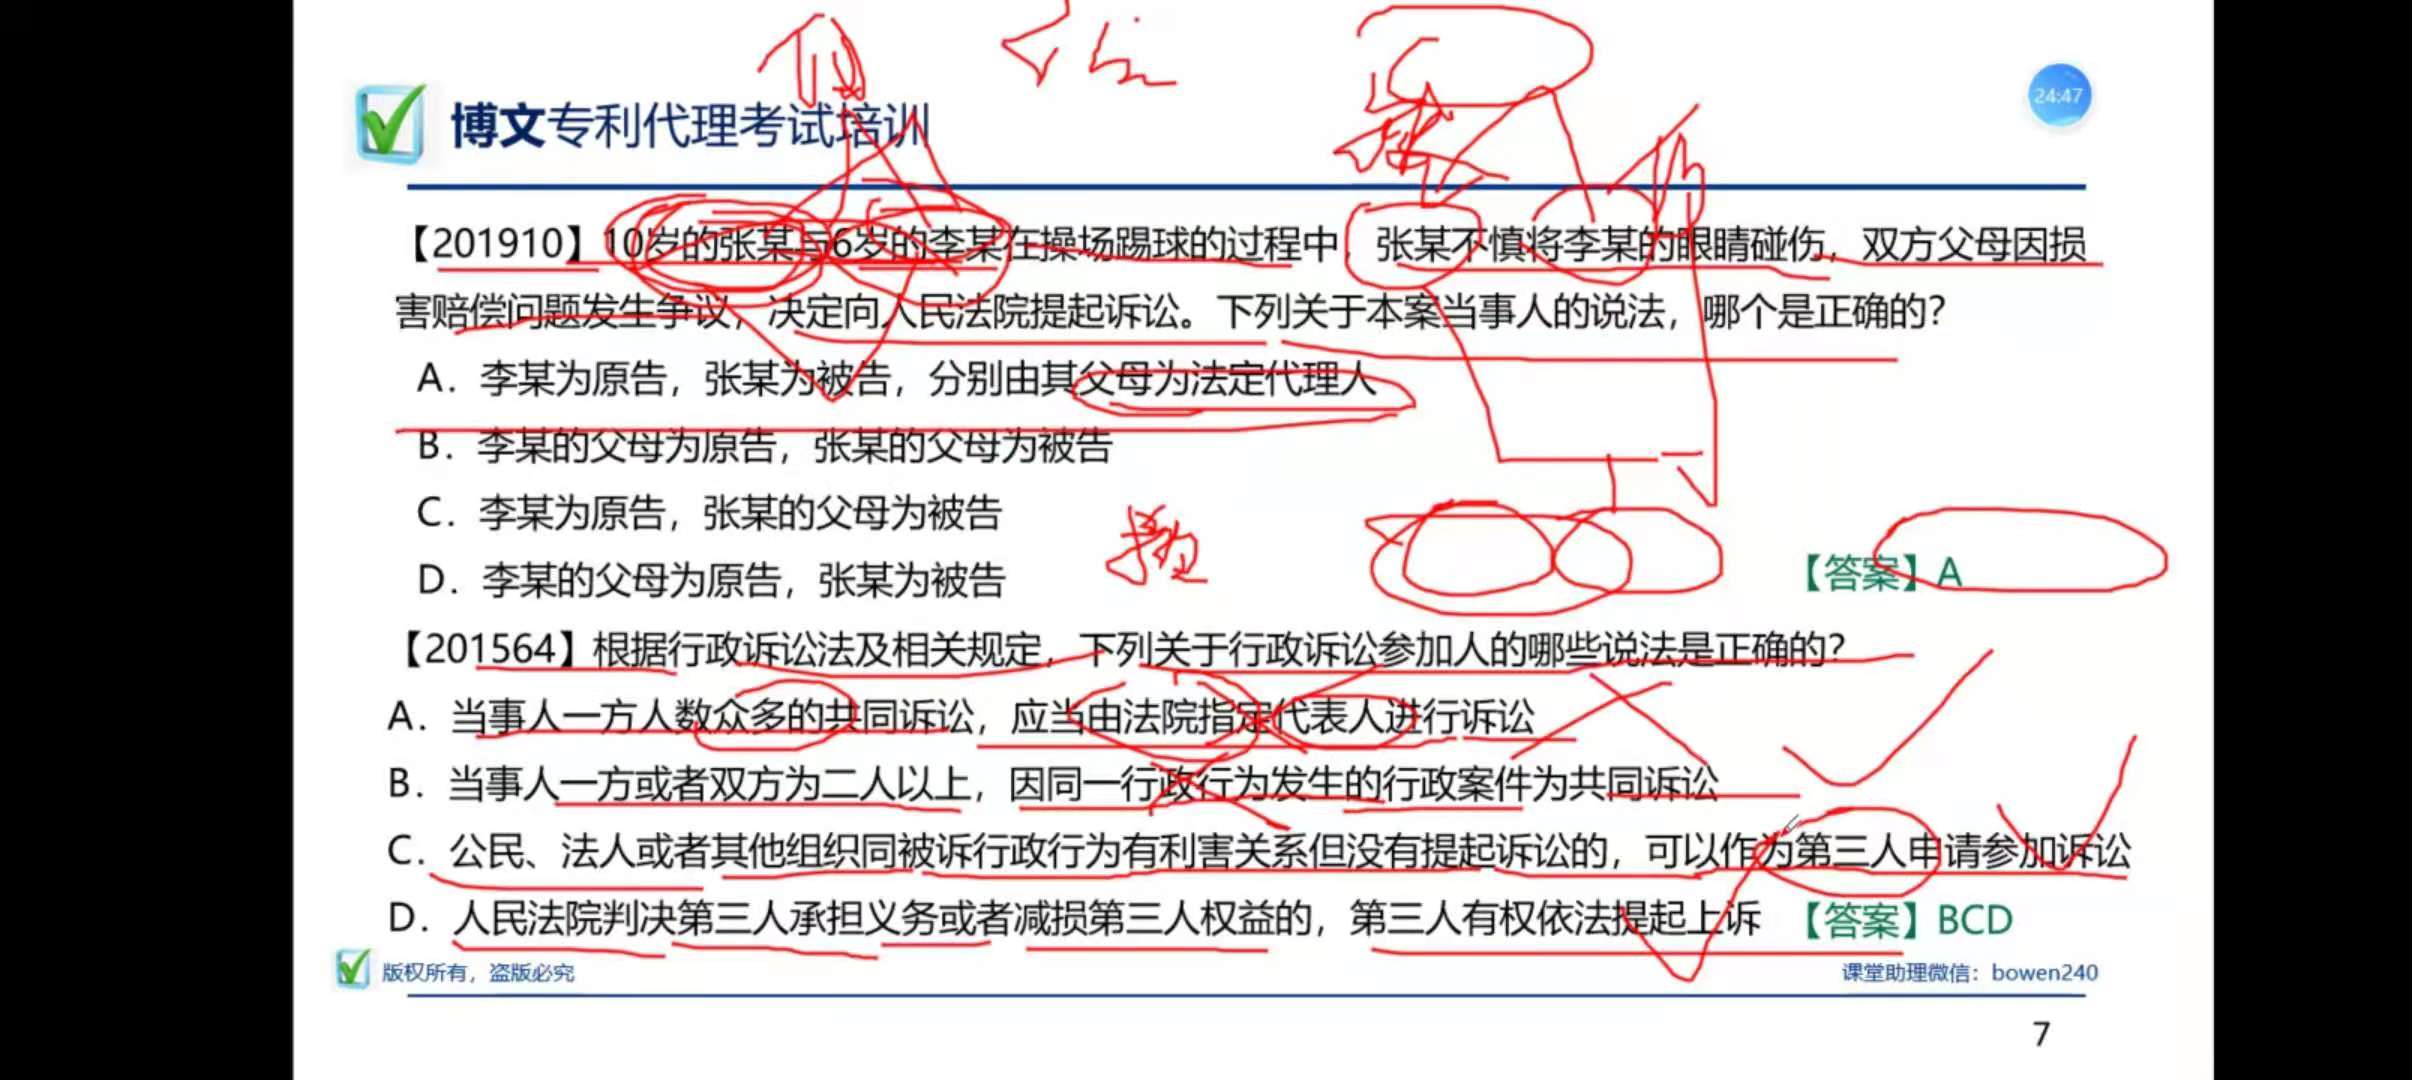 博文专利代理考试培训
24:47
【201910】10岁的张某与6岁的李某在操场踢球的过程中，张某不慎将李某的眼睛碰伤，双方父母因损
害赔偿问题发生争议，决定向人民法院提起诉讼。下列关于本案当事人的说法，哪个是正确的？
A．李某为原告，张某为被告，分别由其父母为法定代理人
B．李某的父母为原告，张某的父母为被告
C．李某为原告，张某的父母为被告
D．李某的父母为原告，张某为被告
【答案】A
【201564】根据行政诉讼法及相关规定，下列关于行政诉讼参加人的哪些说法是正确的？
A．当事人一方人数众多的共同诉讼，应当由法院指定代表人进行诉讼
B．当事人一方或者双方为二人以上，因同一行政行为发生的行政案件为共同诉讼
C．公民、法人或者其他组织同被诉行政行为有利害关系但没有提起诉讼的，可以作为第三人申请参加诉讼
D．人民法院判决第三人承担义务或者减损第三人权益的，第三人有权依法提起上诉 【答案】BCD
版权所有，盗版必究
课堂助理微信：bowen240
7